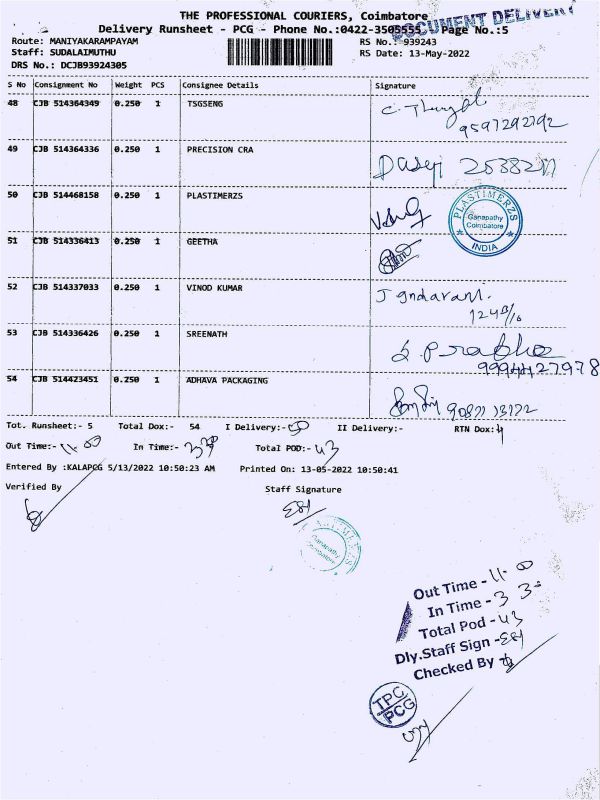 THE PROFESSIONAL COURIERS, Coimbatore
DOCUMENT DELIVERY
Delivery Runsheet - PCG - Phone No.:0422-3505555 Page No.:5
Route: MANIYAKARAMPAYAM RS No.: 939243
Staff: SUDALAIMUTHU RS Date: 13-May-2022
DRS No.: DCJB93924305
S No Consignment No Weight PCS Consignee Details Signature
48 CJB 514364349 0.250 1 TSGSENG
9597292192
49 CJB 514364336 0.250 1 PRECISION CRA
50 CJB 514468158 0.250 1 PLASTIMERZS
PLASTIMERZS
Ganapathy
Coimbatore
INDIA
51 CJB 514336413 0.250 1 GEETHA
52 CJB 514337033 0.250 1 VINOD KUMAR
53 CJB 514336426 0.250 1 SREENATH
Prabha
9994427978
54 CJB 514423451 0.250 1 ADHAVA PACKAGING
Tot. Runsheet:- 5 Total Dox:- 54 I Delivery:-50 II Delivery:- RTN Dox:4
Out Time:- 11-00 In Time:- 3 30 Total POD:- 43
Entered By :KALAPCG 5/13/2022 10:50:23 AM Printed On: 13-05-2022 10:50:41
Verified By Staff Signature
Ganapathy
Coimbatore
Out Time - 11-00
In Time - 3 30
Total Pod - 43
Dly.Staff Sign -
Checked By
TPC
PCG